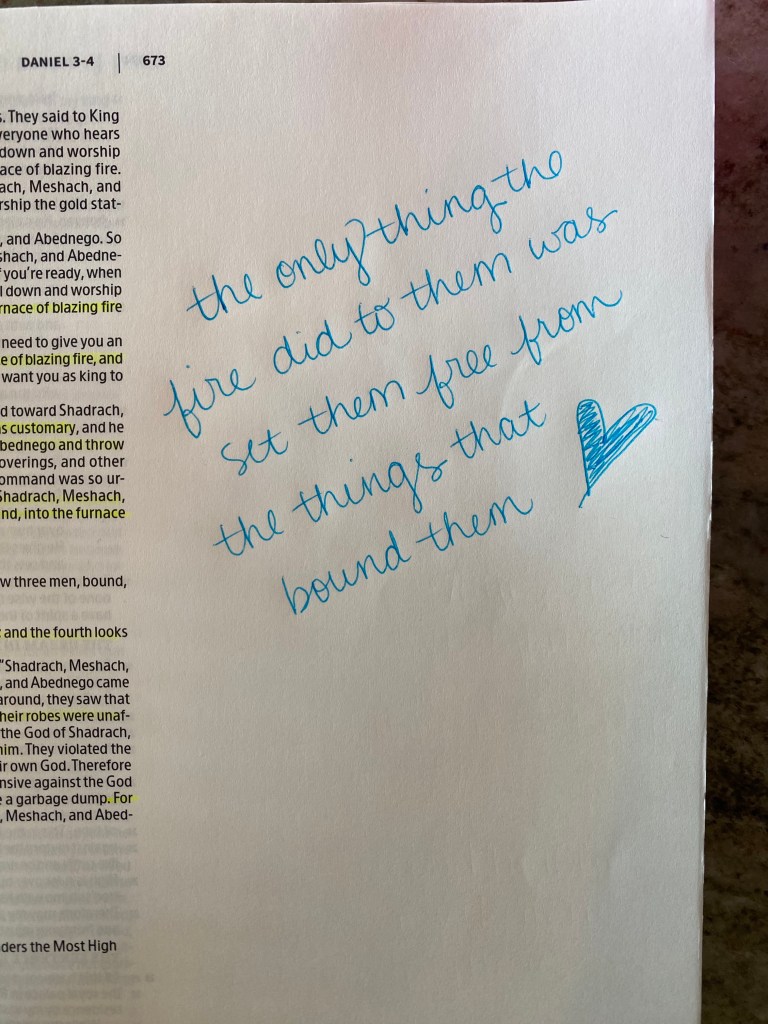 DANIEL 3-4 | 673
s. They said to King
veryone who hears
down and worship
ace of blazing fire.
ach, Meshach, and
rship the gold stat-
, and Abednego. So
shach, and Abedne-
f you're ready, when
l down and worship
rnace of blazing fire
need to give you an
e of blazing fire, and
want you as king to
d toward Shadrach,
s customary, and he
bednego and throw
overings, and other
ommand was so ur-
Shadrach, Meshach,
nd, into the furnace
w three men, bound,
; and the fourth looks
"Shadrach, Meshach,
, and Abednego came
around, they saw that
heir robes were unaf-
the God of Shadrach,
him. They violated the
ir own God. Therefore
nsive against the God
e a garbage dump. For
, Meshach, and Abed-
ders the Most High
the only thing the
fire did to them was
set them free from
the things that
bound them